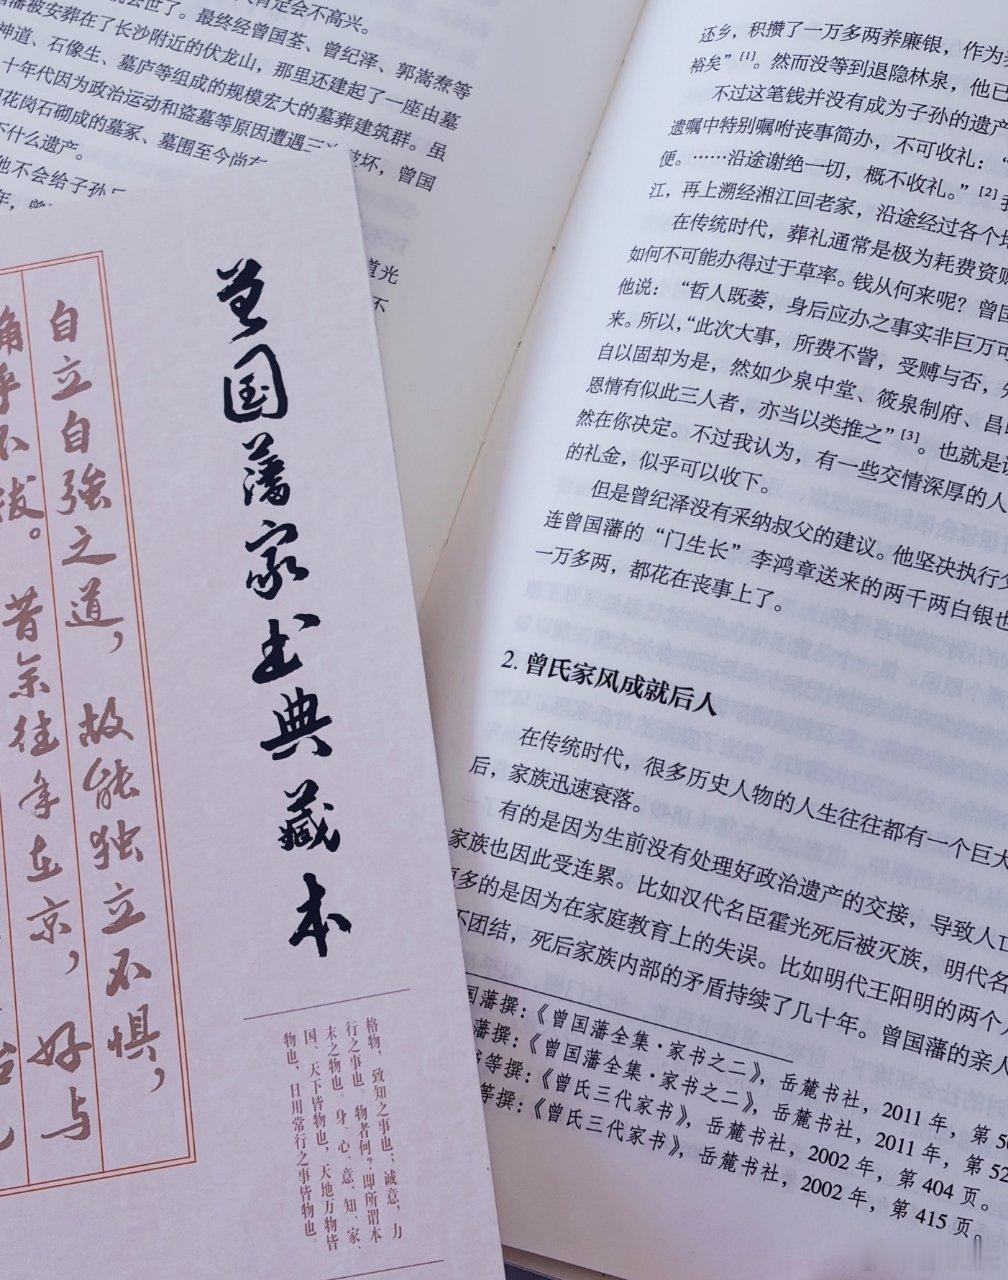 肯定会不高兴。
被安葬在了长沙附近的伏龙山，那里还建起了一座由墓
神道、石像生、墓庐等组成的规模宏大的墓葬建筑群。虽
十年代因为政治运动和盗墓等原因遭遇三次破坏，曾国
花岗石砌成的墓冢、墓围至今尚存
什么遗产。
他不会给子孙
年，曾
道光
不
自立自強之道，故能独立不惧，
确乎不拔。昔余往年在京，好与
曾国藩家书典藏本
格物，致知之事也；诚意，力
行之事也。物者何？即所谓本
末之物也。身、心、意、知、家、
国、天下皆物也，天地万物皆
物也，日用常行之事皆物也。
还乡，积攒了一万多两养廉银，作为
裕矣”[1]。然而没等到退隐林泉，他已
不过这笔钱并没有成为子孙的遗产
遗嘱中特别嘱咐丧事简办，不可收礼：“
便。……沿途谢绝一切，概不收礼。”[2]
江，再上溯经湘江回老家，沿途经过各个
在传统时代，葬礼通常是极为耗费资财
如何不可能办得过于草率。钱从何来呢？曾国
他说：“哲人既萎，身后应办之事实非巨万可
来。所以，“此次大事，所费不訾，受赙与否，
自以固却为是，然如少泉中堂、筱泉制府、昌
恩情有似此三人者，亦当以类推之”[3]。也就是说
然在你决定。不过我认为，有一些交情深厚的人
的礼金，似乎可以收下。
但是曾纪泽没有采纳叔父的建议。他坚决执行父
连曾国藩的“门生长”李鸿章送来的两千两白银也
一万多两，都花在丧事上了。
2. 曾氏家风成就后人
在传统时代，很多历史人物的人生往往都有一个巨大
后，家族迅速衰落。
有的是因为生前没有处理好政治遗产的交接，导致人亡
家族也因此受连累。比如汉代名臣霍光死后被灭族，明代名
更多的是因为在家庭教育上的失误。比如明代王阳明的两个
不团结，死后家族内部的矛盾持续了几十年。曾国藩的亲人
国藩撰：《曾国藩全集·家书之二》，岳麓书社，2011年，第5
藩撰：《曾国藩全集·家书之二》，岳麓书社，2011年，第52
等撰：《曾氏三代家书》，岳麓书社，2002年，第404页。
等撰：《曾氏三代家书》，岳麓书社，2002年，第415页。